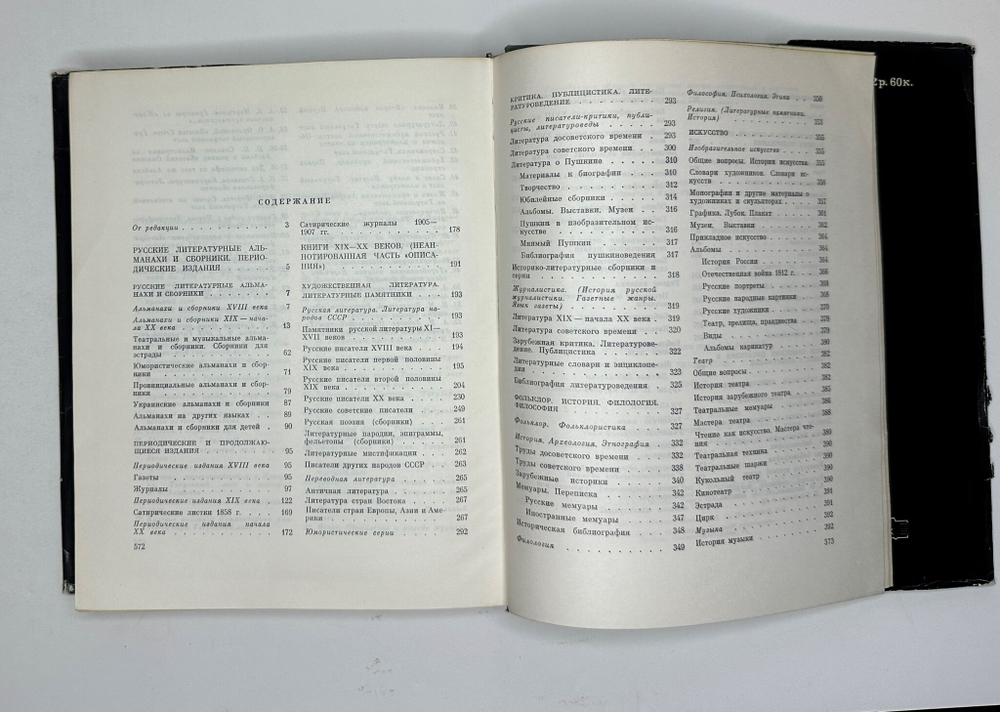 СОДЕРЖАНИЕ
От редакции . . . 3
РУССКИЕ ЛИТЕРАТУРНЫЕ АЛЬ-
МАНАХИ И СБОРНИКИ. ПЕРИО-
ДИЧЕСКИЕ ИЗДАНИЯ . . . 5
РУССКИЕ ЛИТЕРАТУРНЫЕ АЛЬМА-
НАХИ И СБОРНИКИ . . . 7
Альманахи и сборники XVIII века 7
Альманахи и сборники XIX — нача-
ла XX века . . . 13
Театральные и музыкальные альма-
нахи и сборники. Сборники для
эстрады . . . 62
Юмористические альманахи и сбор-
ники . . . 71
Провинциальные альманахи и сбор-
ники . . . 79
Украинские альманахи и сборники 87
Альманахи на других языках . . 89
Альманахи и сборники для детей . 90
ПЕРИОДИЧЕСКИЕ И ПРОДОЛЖАЮ-
ЩИЕСЯ ИЗДАНИЯ . . . 95
Периодические издания XVIII века 95
Газеты . . . 95
Журналы . . . 97
Периодические издания XIX века . 122
Сатирические листки 1858 г. . 169
Периодические издания начала
XX века . . . 172
572
Сатирические журналы 1905—
1907 гг. . . . 178
КНИГИ XIX—XX ВЕКОВ. (НЕАН-
НОТИРОВАННАЯ ЧАСТЬ «ОПИСА-
НИЯ») . . . 191
ХУДОЖЕСТВЕННАЯ ЛИТЕРАТУРА.
ЛИТЕРАТУРНЫЕ ПАМЯТНИКИ . . . 193
Русская литература. Литература на-
родов СССР . . . 193
Памятники русской литературы XI—
XVII веков . . . 193
Русские писатели XVIII века . . 194
Русские писатели первой половины
XIX века . . . 195
Русские писатели второй половины
XIX века . . . 204
Русские писатели XX века . . . 230
Русские советские писатели . . . 249
Русская поэзия (сборники) . . . 261
Литературные пародии, эпиграммы,
фельетоны (сборники) . . . 261
Литературные мистификации . . 262
Писатели других народов СССР . . 263
Переводная литература . . . 265
Античная литература . . . 265
Литература стран Востока . . . 267
Писатели стран Европы, Азии и Аме-
рики . . . 267
Юмористические серии . . . 292
КРИТИКА. ПУБЛИЦИСТИКА. ЛИТЕ-
РАТУРОВЕДЕНИЕ . . . 293
Русские писатели-критики, публи-
цисты, литературоведы . . . 293
Литература досоветского времени . . 293
Литература советского времени . . 300
Литература о Пушкине . . . 310
Материалы к биографии . . . 310
Творчество . . . 312
Юбилейные сборники . . . 314
Альбомы. Выставки. Музеи . . 316
Пушкин в изобразительном ис-
кусстве . . . 316
Мнимый Пушкин . . . 317
Библиография пушкиноведения 317
Историко-литературные сборники и
серии . . . 318
Журналистика. (История русской
журналистики. Газетные жанры.
Язык газеты) . . . 319
Литература XIX — начала XX века . 319
Литература советского времени . . 320
Зарубежная критика. Литературове-
дение. Публицистика . . . 322
Литературные словари и энциклопе-
дии . . . 323
Библиография литературоведения . . 325
ФОЛЬКЛОР. ИСТОРИЯ. ФИЛОЛОГИЯ.
ФИЛОСОФИЯ . . . 327
Фольклор. Фольклористика . . . 327
История, Археология, Этнография . . 332
Труды досоветского времени . . . 332
Труды советского времени . . . 338
Зарубежные историки . . . 340
Мемуары. Переписка . . . 342
Русские мемуары . . . 342
Иностранные мемуары . . . 347
Историческая библиография . . . 348
Филология . . . 349
Философия. Психология. Этика . . 350
Религия. (Литературные памятники.
История) . . . 353
ИСКУССТВО . . . 355
Изобразительное искусство . . . 355
Общие вопросы. История искусства 355
Словари художников. Словари ис-
кусств . . . 356
Монографии и другие материалы о
художниках и скульпторах . . . 357
Графика. Лубок. Плакат . . . 361
Музеи. Выставки . . . 362
Прикладное искусство . . . 364
Альбомы . . . 364
История России . . . 364
Отечественная война 1812 г. . . 366
Русские портреты . . . 368
Русские народные картинки . . 370
Русские художники . . . 370
Театр, зрелища, празднества . . 378
Виды . . . 379
Альбомы карикатур . . . 382
Театр . . . 382
Общие вопросы . . . 382
История театра . . . 382
История зарубежного театра . . 385
Театральные мемуары . . . 386
Мастера театра . . . 388
Чтение как искусство. Мастера чте-
ния . . . 389
Театральная техника . . . 390
Театральные шаржи . . . 390
Кукольный театр . . . 390
Кинотеатр . . . 390
Эстрада . . . 391
Цирк . . . 392
Музыка . . . 392
История музыки . . . 392
573
2р. 60к.